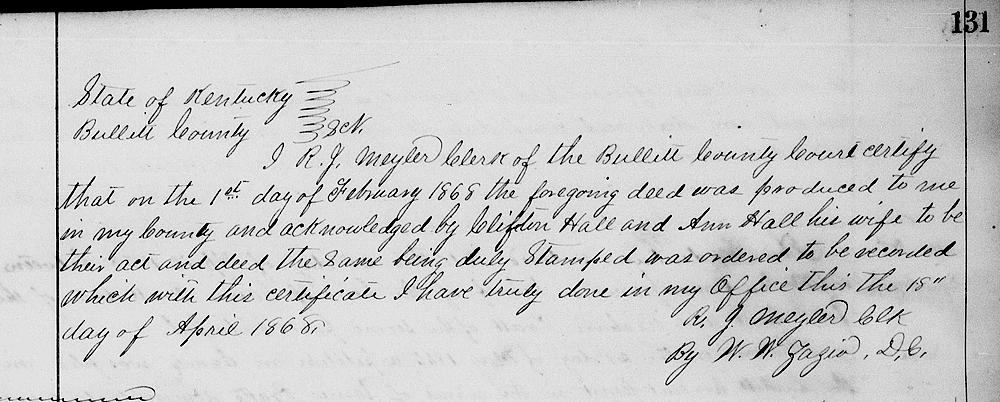 131
State of Kentucky
Bullitt County } Sct.
I R. J. Meyler Clerk of the Bullitt County Court certify
that on the 1st day of February 1868 the foregoing deed was produced to me
in my County and acknowledged by Clifton Hall and Ann Hall his wife to be
their act and deed the same being duly Stamped was ordered to be recorded
which with this certificate I have truly done in my Office this the 18"
day of April 1868.
R. J. Meyler Clk
By W. W. , D.C.